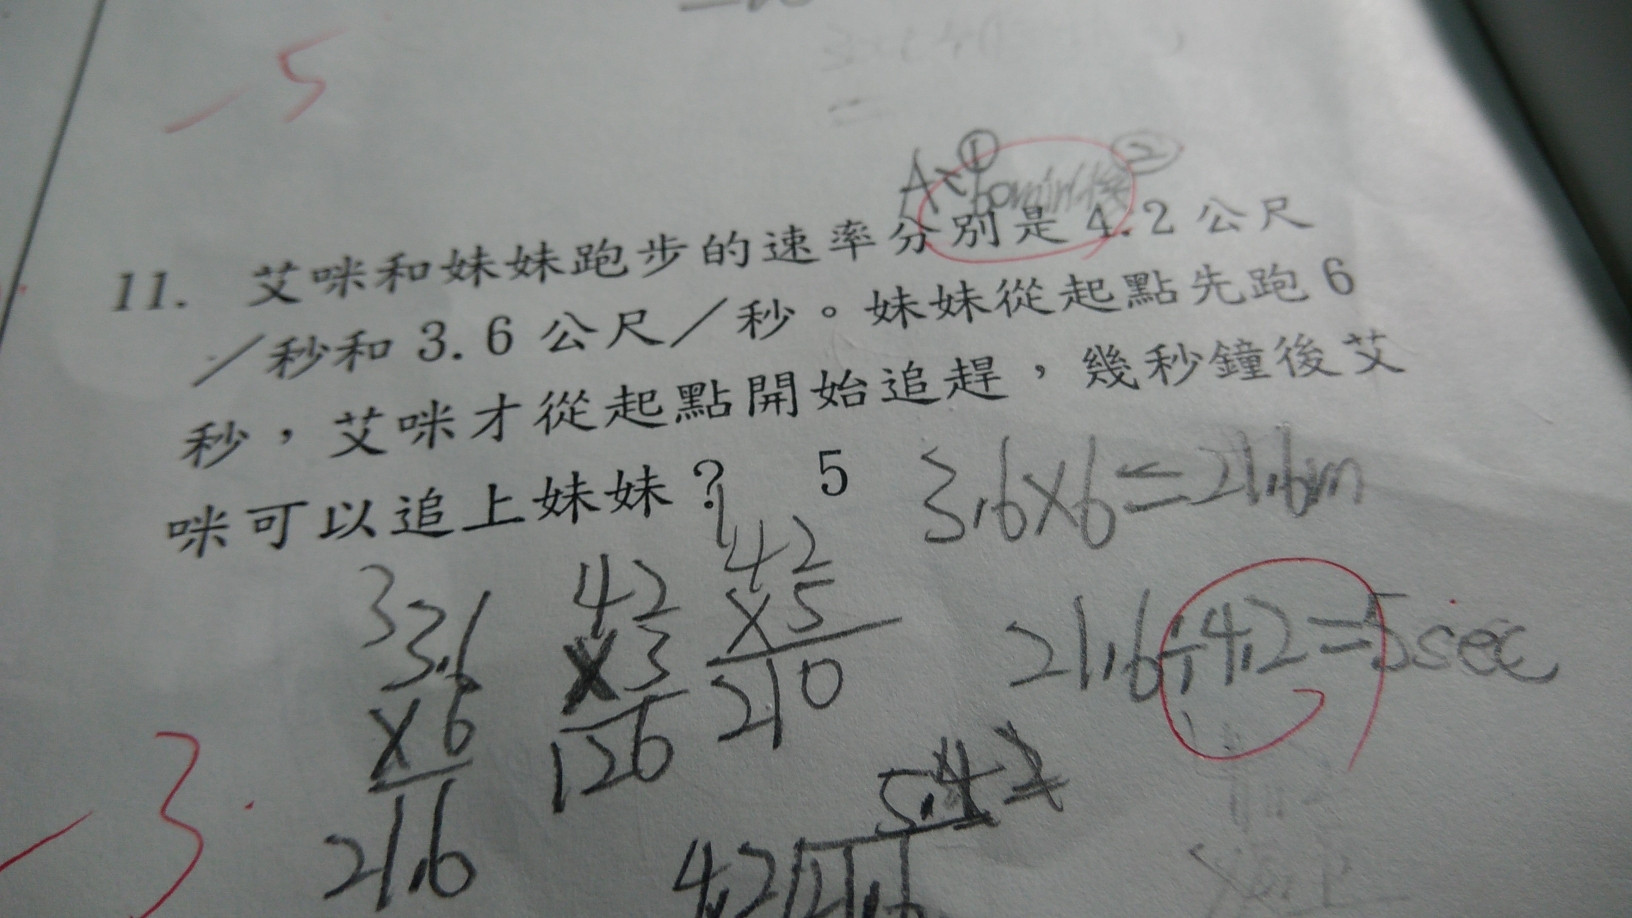 -5
11. 艾咪和妹妹跑步的速率分別是 4.2 公尺
／秒和 3.6 公尺／秒。妹妹從起點先跑 6
秒，艾咪才從起點開始追趕，幾秒鐘後艾
咪可以追上妹妹？ 5
3.6×6=21.6m
21.6÷4.2=5sec
3
3.6
×6
21.6
42
×3
126
1
42
×5
210
-3
5.
4.2 21.6